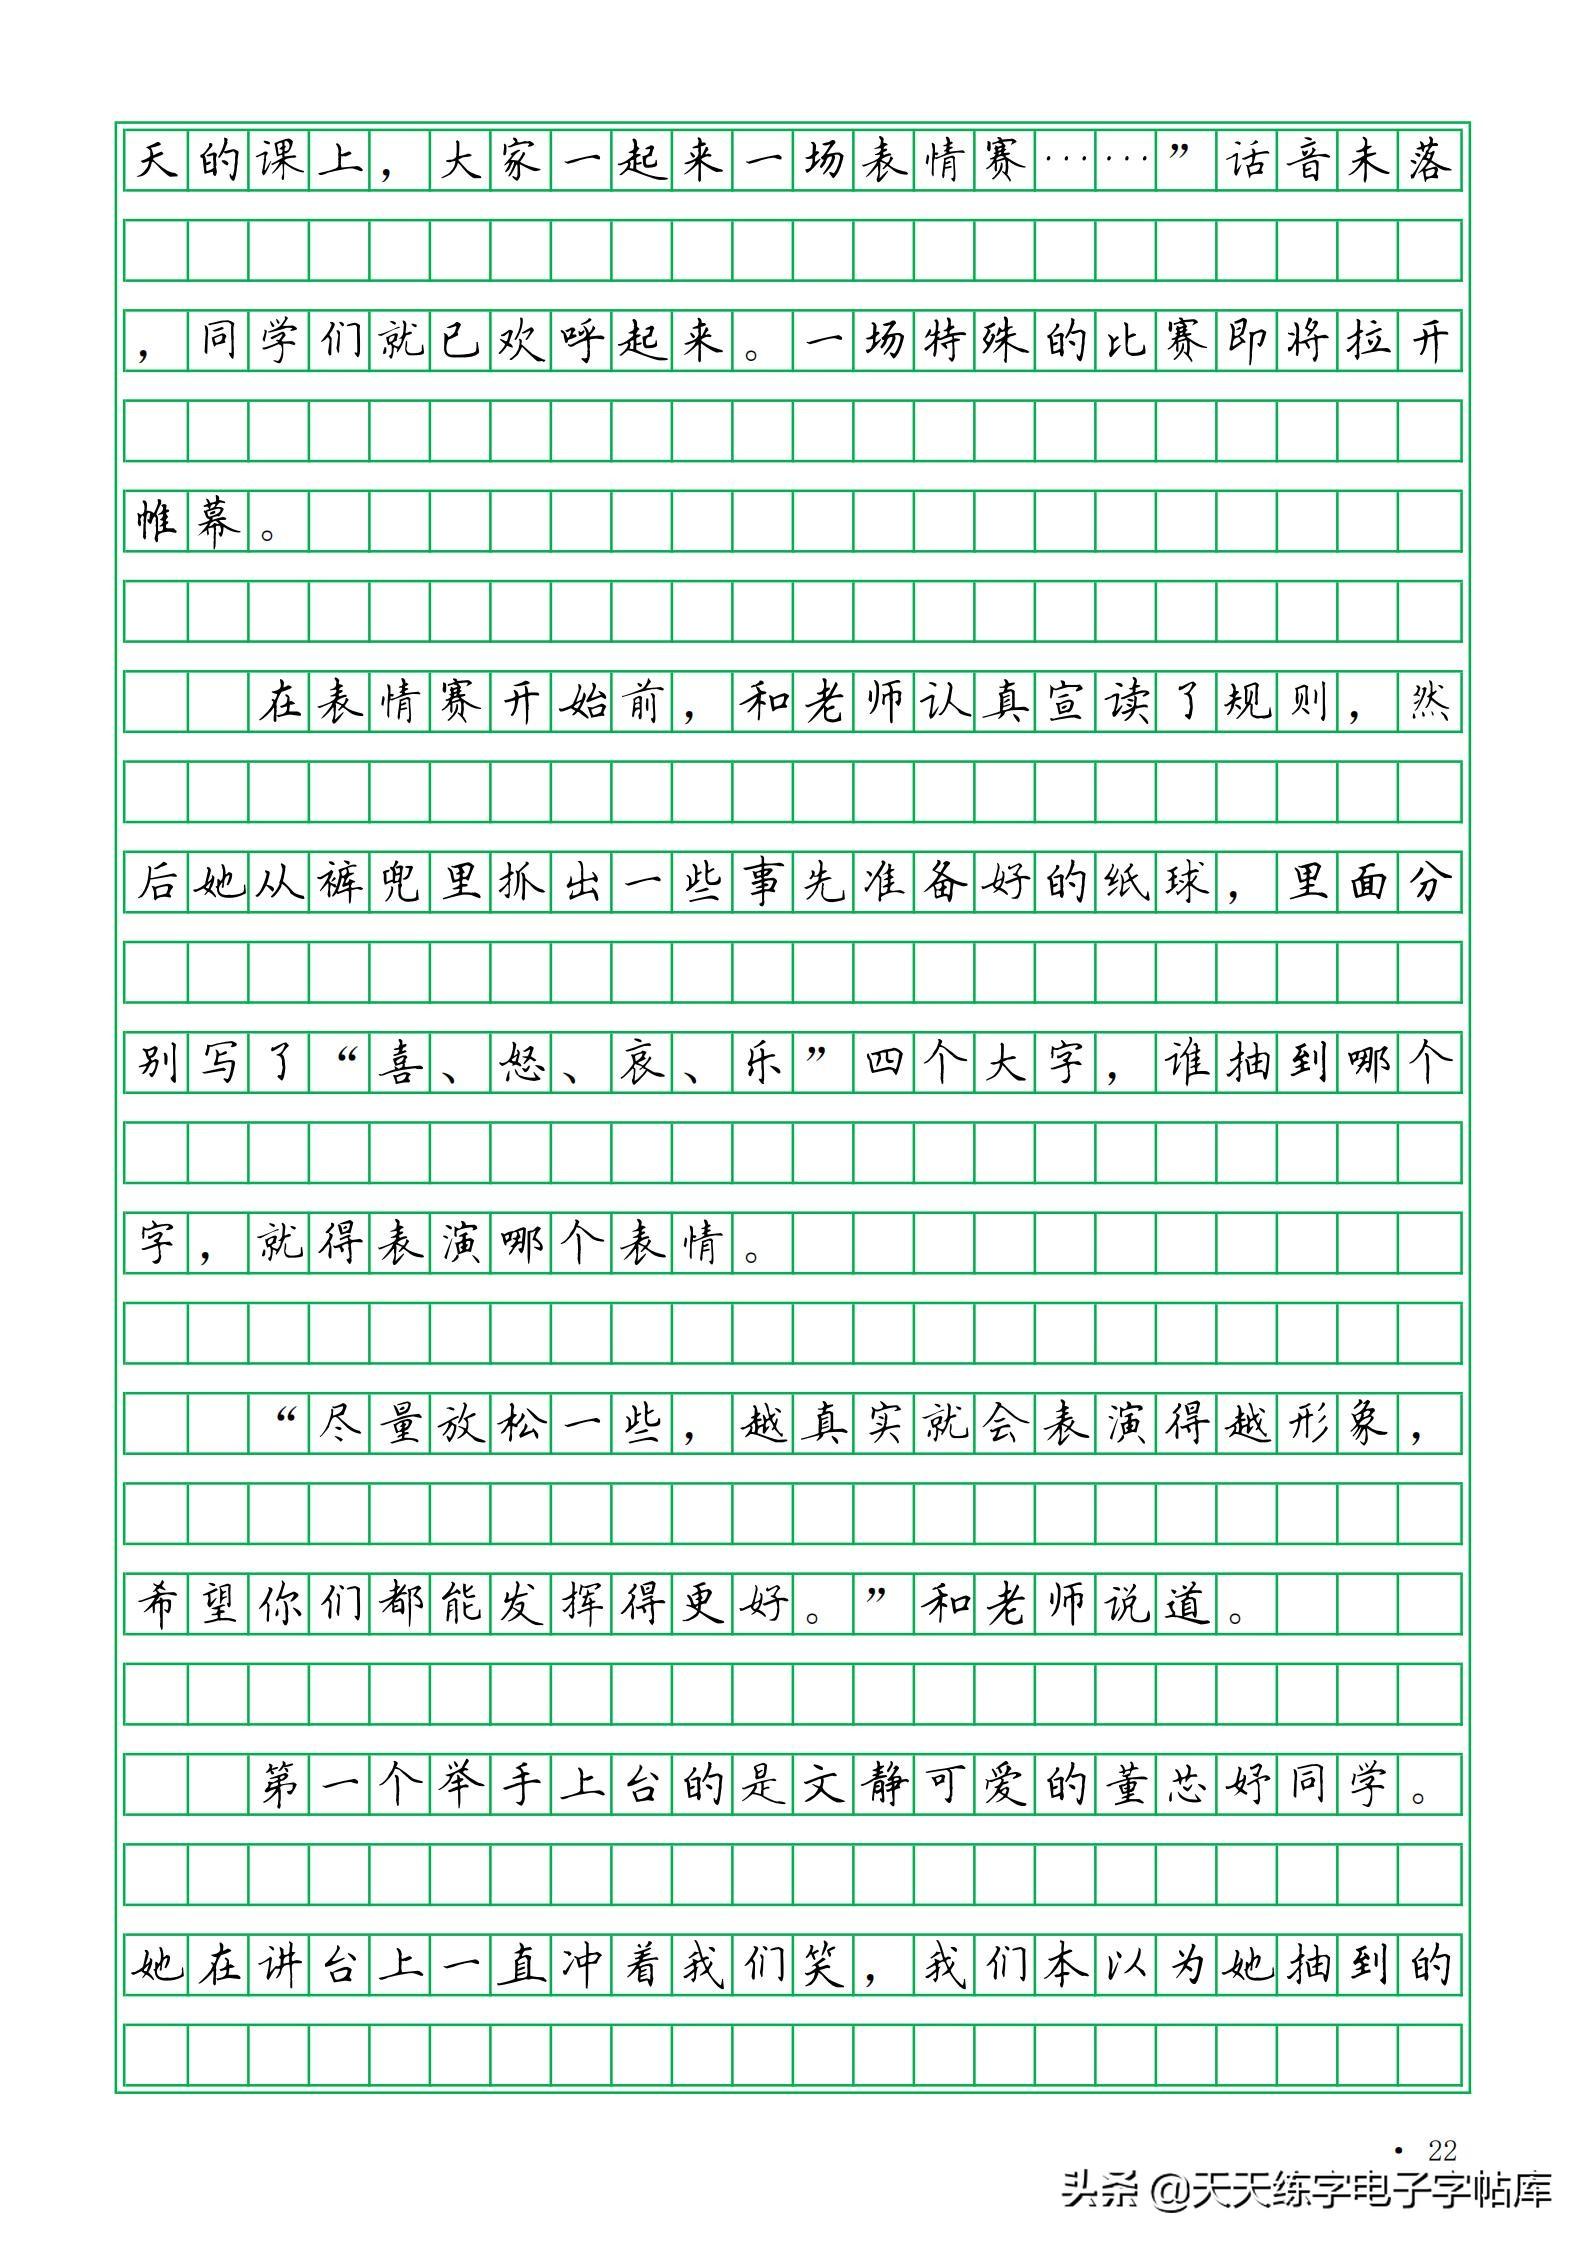 天的课上，大家一起来一场表情赛……”话音未落
，同学们就已欢呼起来。一场特殊的比赛即将拉开
帷幕。
在表情赛开始前，和老师认真宣读了规则，然
后她从裤兜里抓出一些事先准备好的纸球，里面分
别写了“喜、怒、哀、乐”四个大字，谁抽到哪个
字，就得表演哪个表情。
“尽量放松一些，越真实就会表演得越形象，
希望你们都能发挥得更好。”和老师说道。
第一个举手上台的是文静可爱的董芯妤同学。
她在讲台上一直冲着我们笑，我们本以为她抽到的
· 22
头条 @天天练字电子字帖库